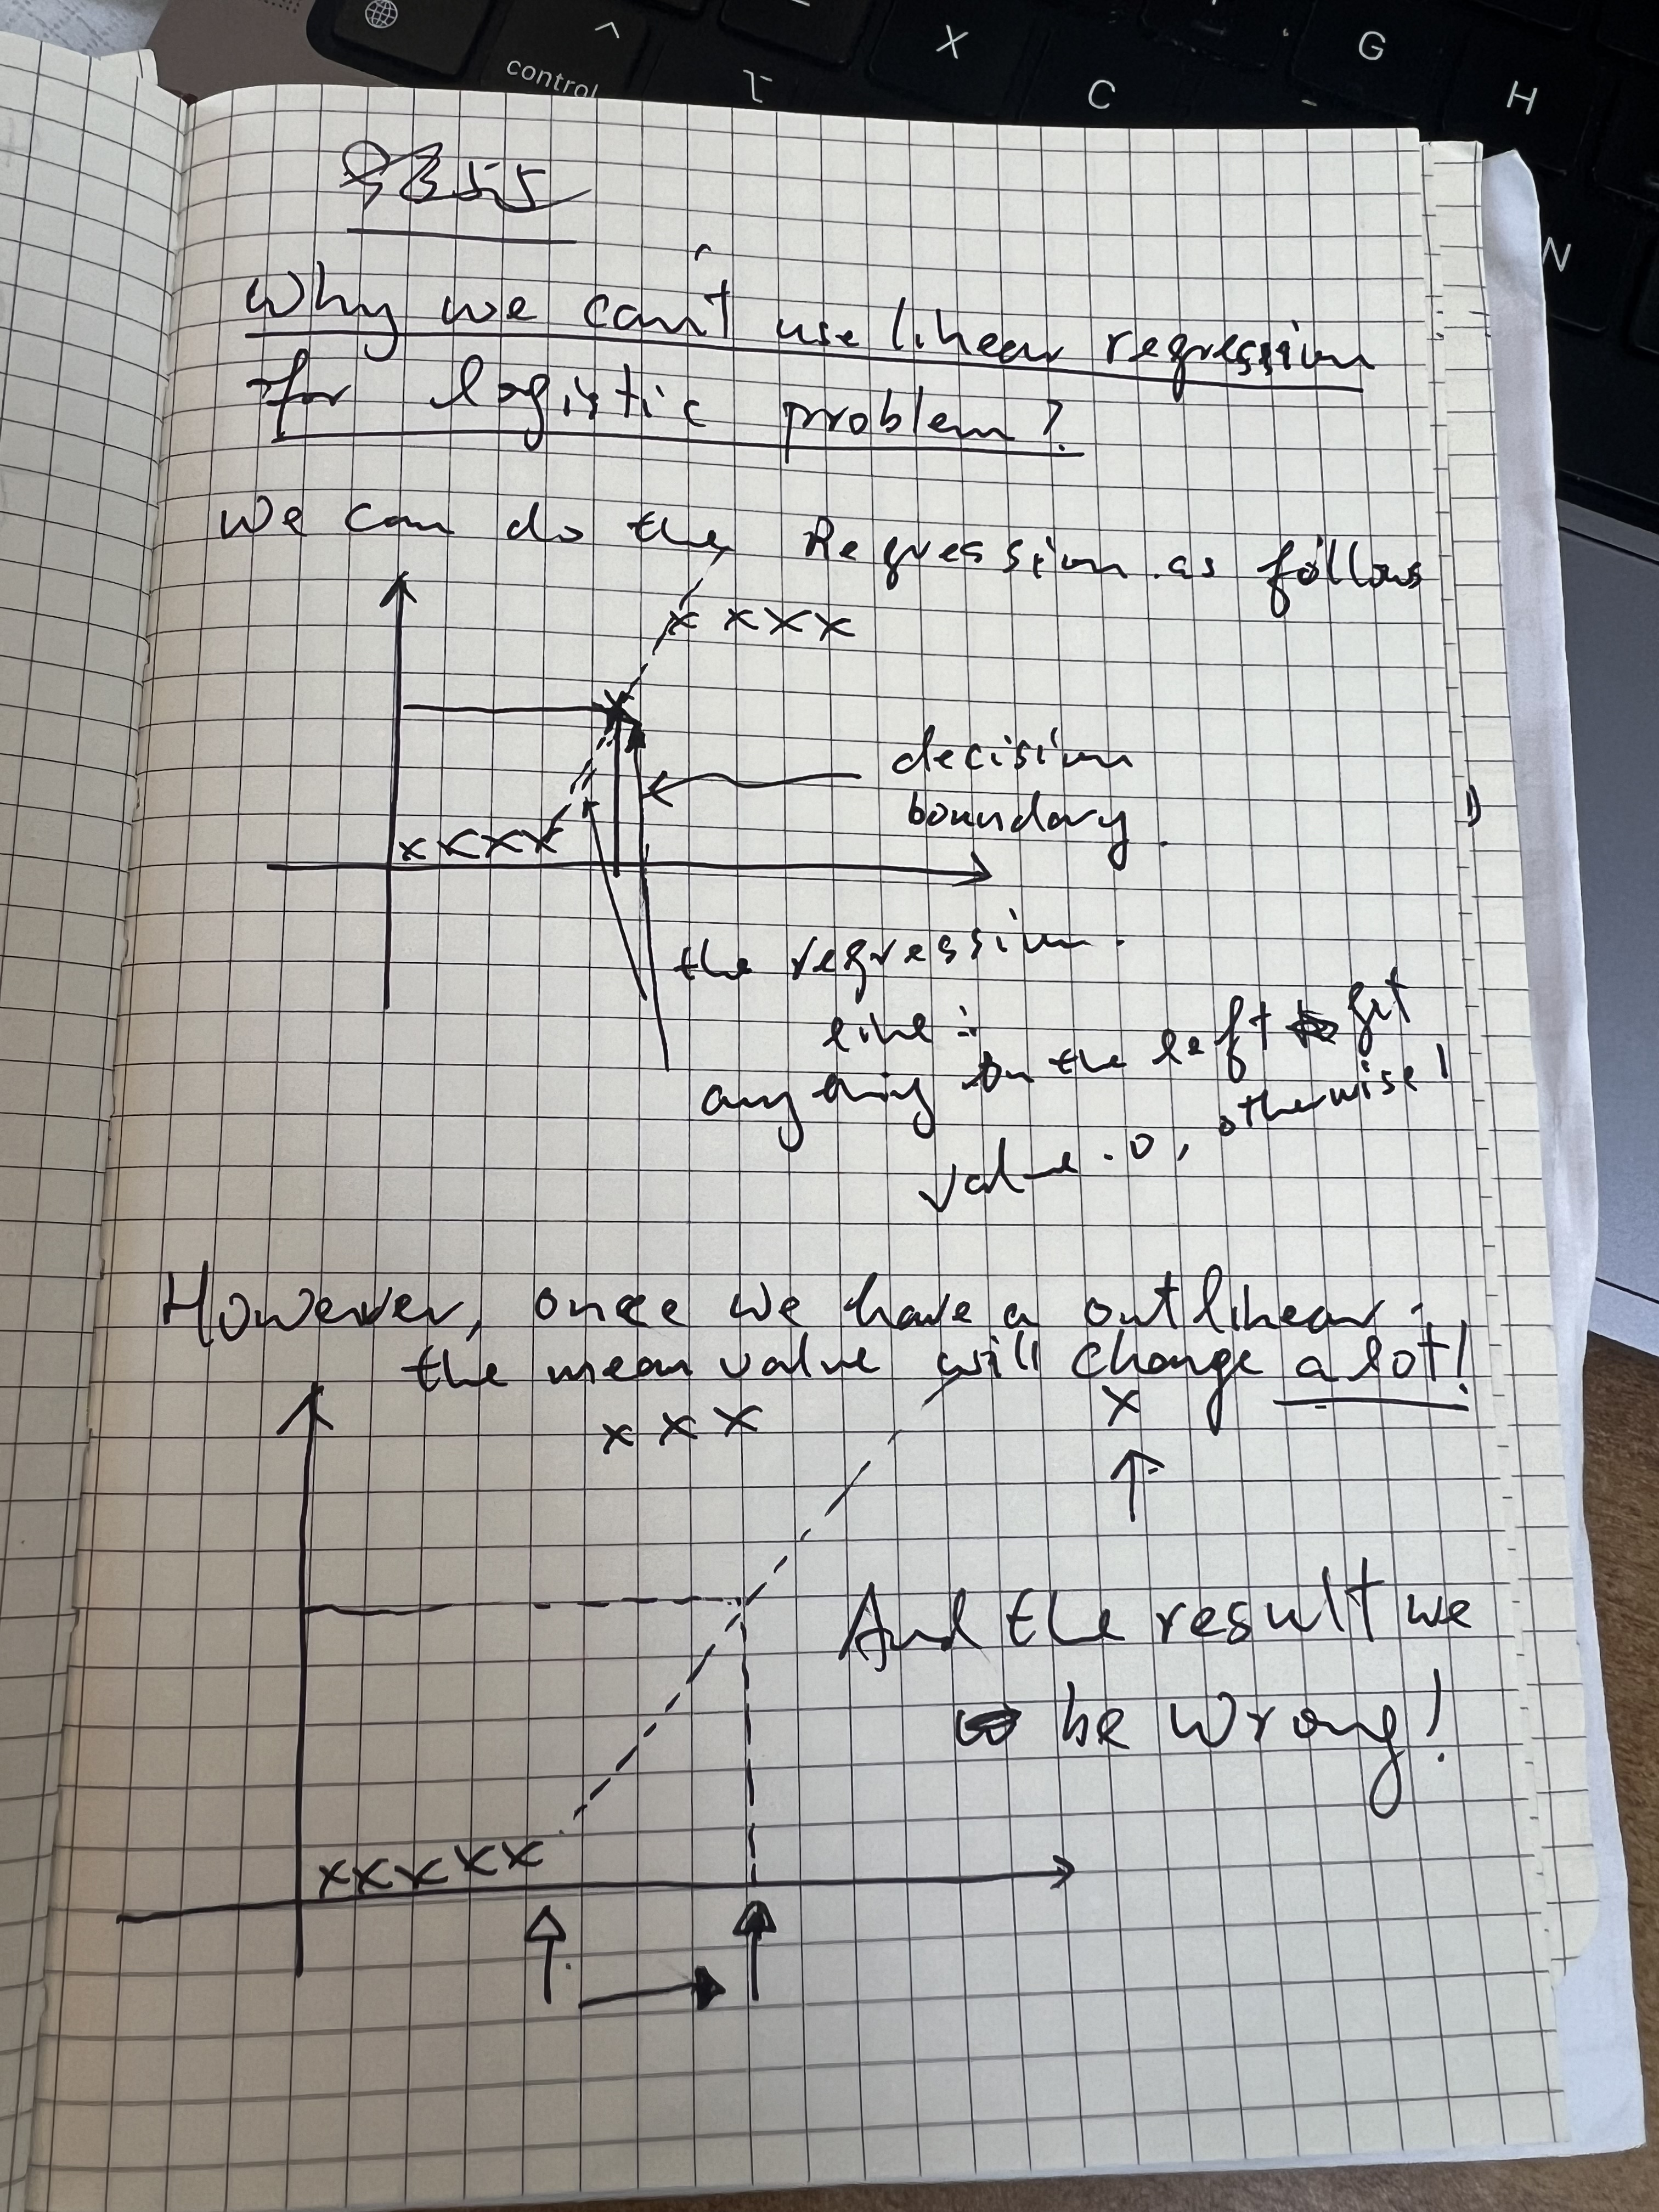 control
X
C
G
H
N
Why we can't use linear regression
for logistic problem?
We can do the Regression as follows
x x x x
decision
boundary.
x x x x
the regression
line :
anything on the left get
value 0, otherwise 1
However, once we have a outlinear
the mean value will change a lot!
x x x x
And the result we
be wrong!
x x x x x